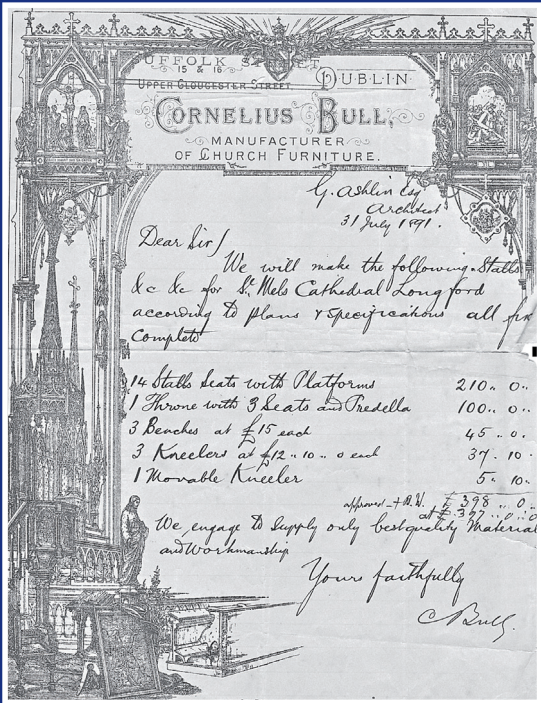 SUFFOLK STREET
15 & 16
UPPER GLOUCESTER STREET DUBLIN
CORNELIUS BULL,
MANUFACTURER
OF CHURCH FURNITURE.
G. Ashlin Esq
Architect
31 July 1891.
Dear Sir/
We will make the following Stalls
&c &c for St. Mels Cathedral Longford
according to plans & specifications all fix
Complete
14 Stalls Seats with Platforms 210 .. 0 ..
1 Throne with 3 Seats and Predella 100 .. 0 ..
3 Benches at £15 each 45 .. 0 .
3 Kneelers at £12 .. 10 .. 0 each 37 . 10 .
1 Movable Kneeler 5 . 10 .
approved £ 398 .. 0 .
at £ 397 .. 0 .. 0
We engage to supply only best quality Material
and Workmanship
Yours faithfully
C Bull.